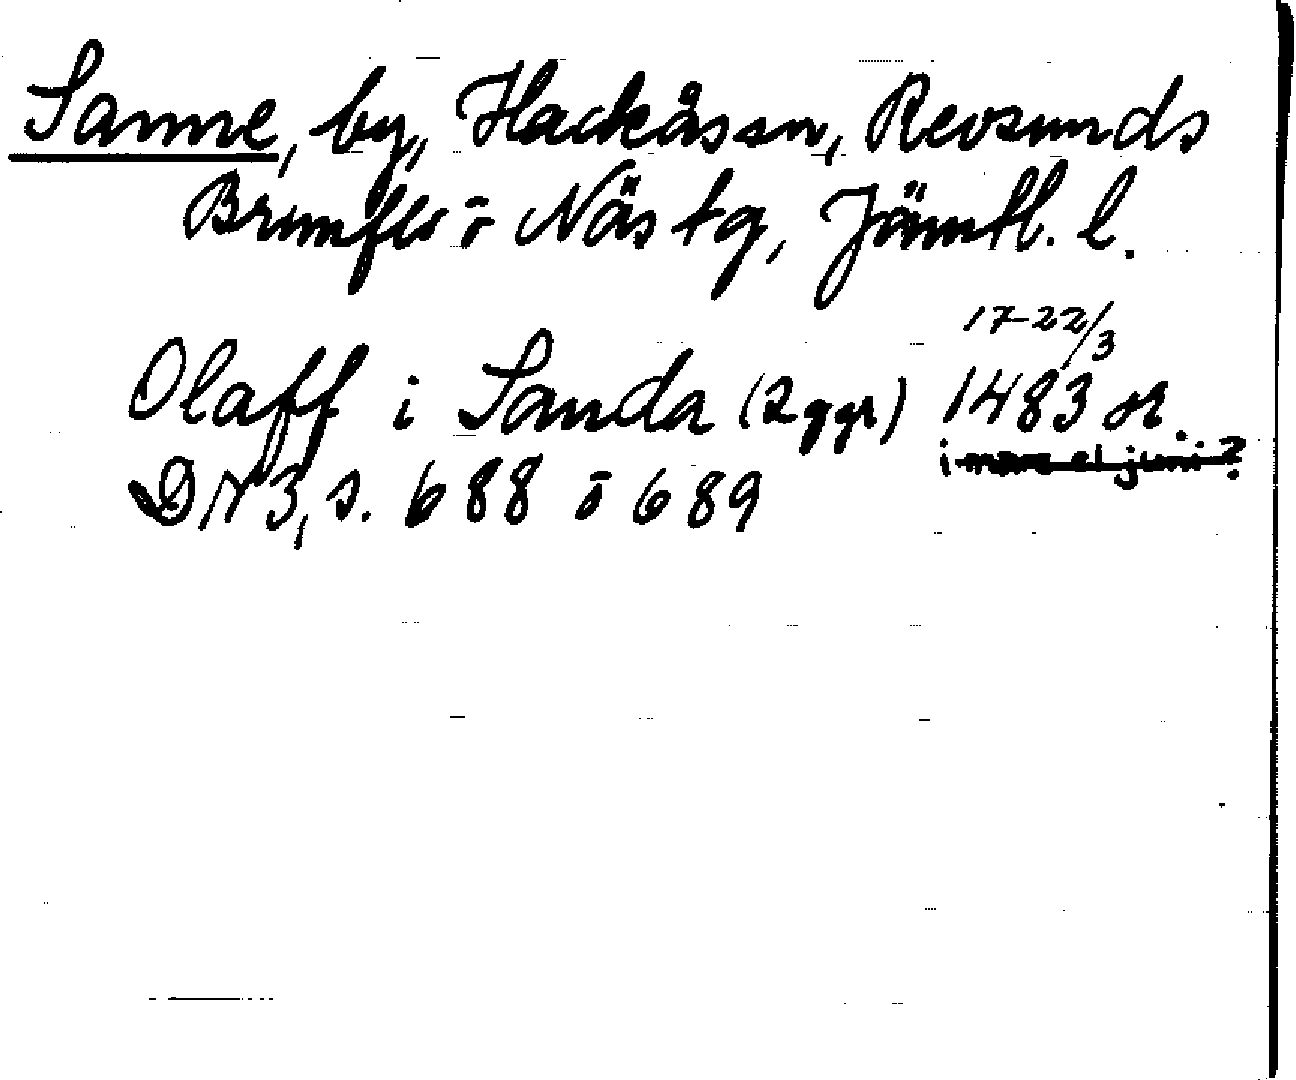 Sanne, by, Hackås sn, Revsunds
Brunflo o Näs tg, Jämtl. l.
17-22/3
Olaff i Sanda (2 ggr) 1483 St.
i mars el juni?
DN 3, s. 688 o 689